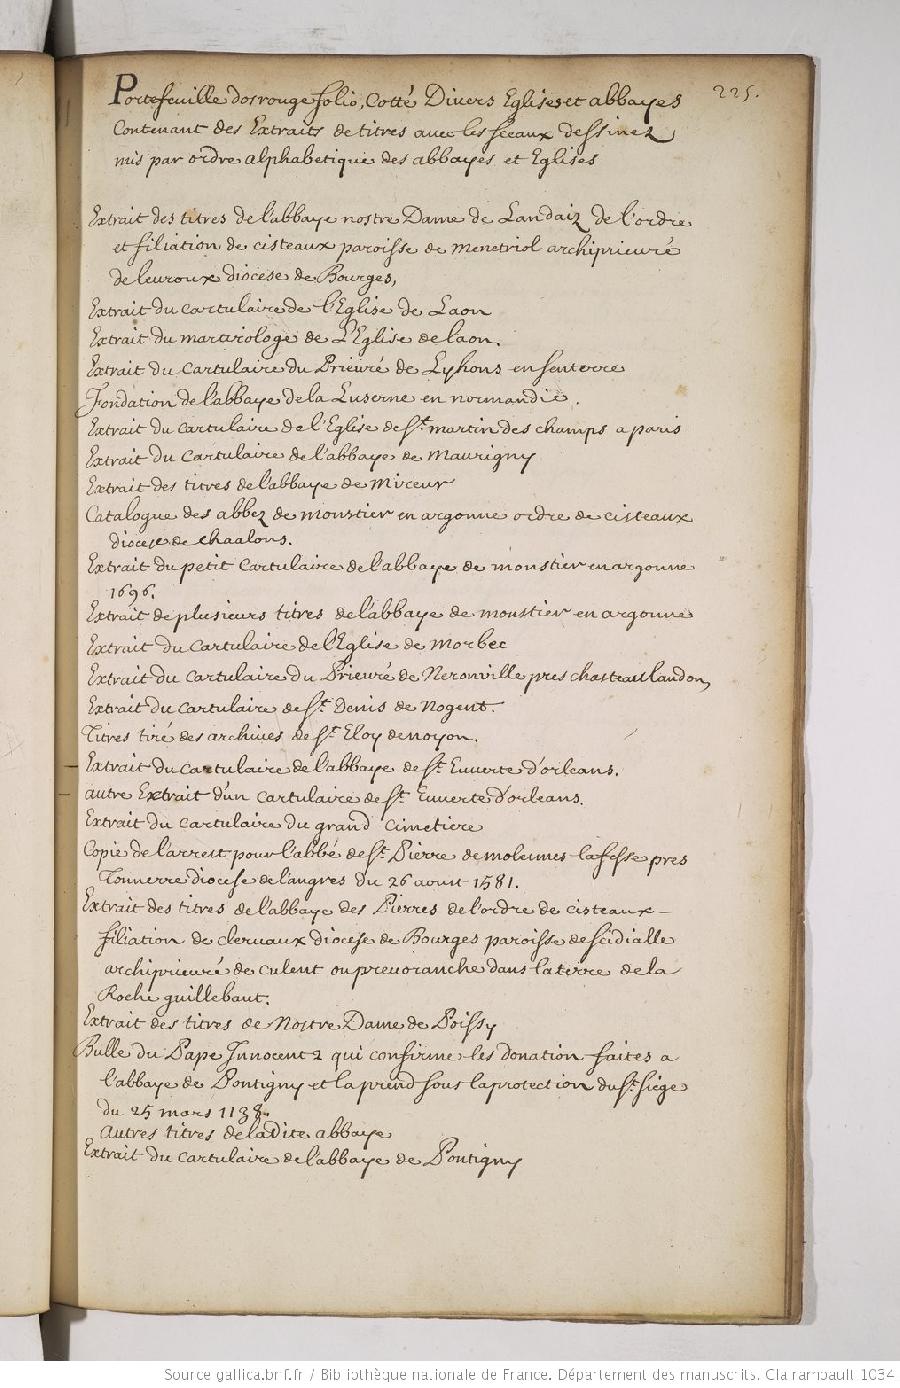 225.
Portefeuille dos rouge folio, Cotté Divers Eglises et abbayes
Contenant des Extraits de titres avec les sceaux dessinez
mis par ordre alphabetique des abbayes et Eglises
Extrait des titres de l'abbaye nostre Dame de Landaiz de l'ordre
et filiation de cisteaux paroisse de menetriol archiprieuré
de leuroux diocese de Bourges,
Extrait du cartulaire de l'Eglise de Laon
Extrait du martirologe de L'Eglise de laon.
Extrait du Cartulaire du Prieuré de Lyhons en senterre
Fondation de l'abbaye de la Luserne en normandie.
Extrait du cartulaire de l'Eglise de St. martin des champs a paris
Extrait du Cartulaire de l'abbaye de Maurigny
Extrait des titres de l'abbaye de Mireur
Catalogue des abbez de monstier en argonne ordre de cisteaux
diocese de chaalons.
Extrait du petit Cartulaire de l'abbaye de monstier en argonne
1696.
Extrait de plusieurs titres de l'abbaye de moustier en argonne
Extrait du Cartulaire de l'Eglise de Morbec
Extrait du Cartulaire du Prieuré de Neronville pres chasteaulandon,
Extrait du Cartulaire de St. Denis de Nogent.
Titres tiré des archives de St. Eloy de noyon.
Extrait du Cartulaire de l'abbaye de St. Euuerte d'orleans.
autre Extrait d'un Cartulaire de St. Euuerte d'orleans.
Extrait du cartulaire du grand Cimetiere
Copie de l'arrest pour l'abbé de St. Pierre de molesmes la fosse pres
Tonnerre diocese de langres du 26 aoust 1581.
Extrait des titres de l'abbaye des Pierres de l'ordre de cisteaux
filiation de clervaux diocese de Bourges paroisse de scidialle
archiprieuré de culent ou prevoranche dans la terre de la
Roche guillebaut.
Extrait des titres de Nostre Dame de Poissy
Bulle du Pape Innocent 2 qui confirme les donation faites a
l'abbaye de Pontigny et la prend sous la protection du St. siege
du 25 mars 1138.
Autres titres de ladite abbaye
Extrait du cartulaire de l'abbaye de Pontigny
Source gallica.bnf.fr / Bibliothèque nationale de France. Département des manuscrits. Clairambault 1034